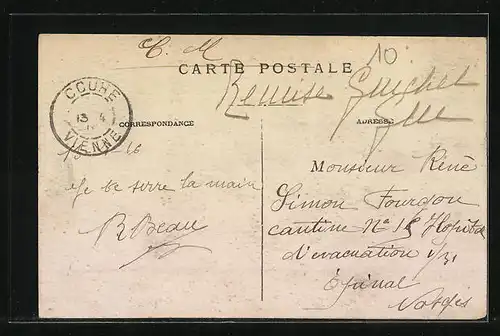 C. M
10
CARTE POSTALE
Remise Guichet
COUHÉ
13 4
VIENNE
CORRESPONDANCE
ADRESSE
16
Je te serre la main
R Beau
Monsieur René
Simon Fourgon
cantine No 15 Hopital
d'evacuation 1/31
Epinal
Vosges